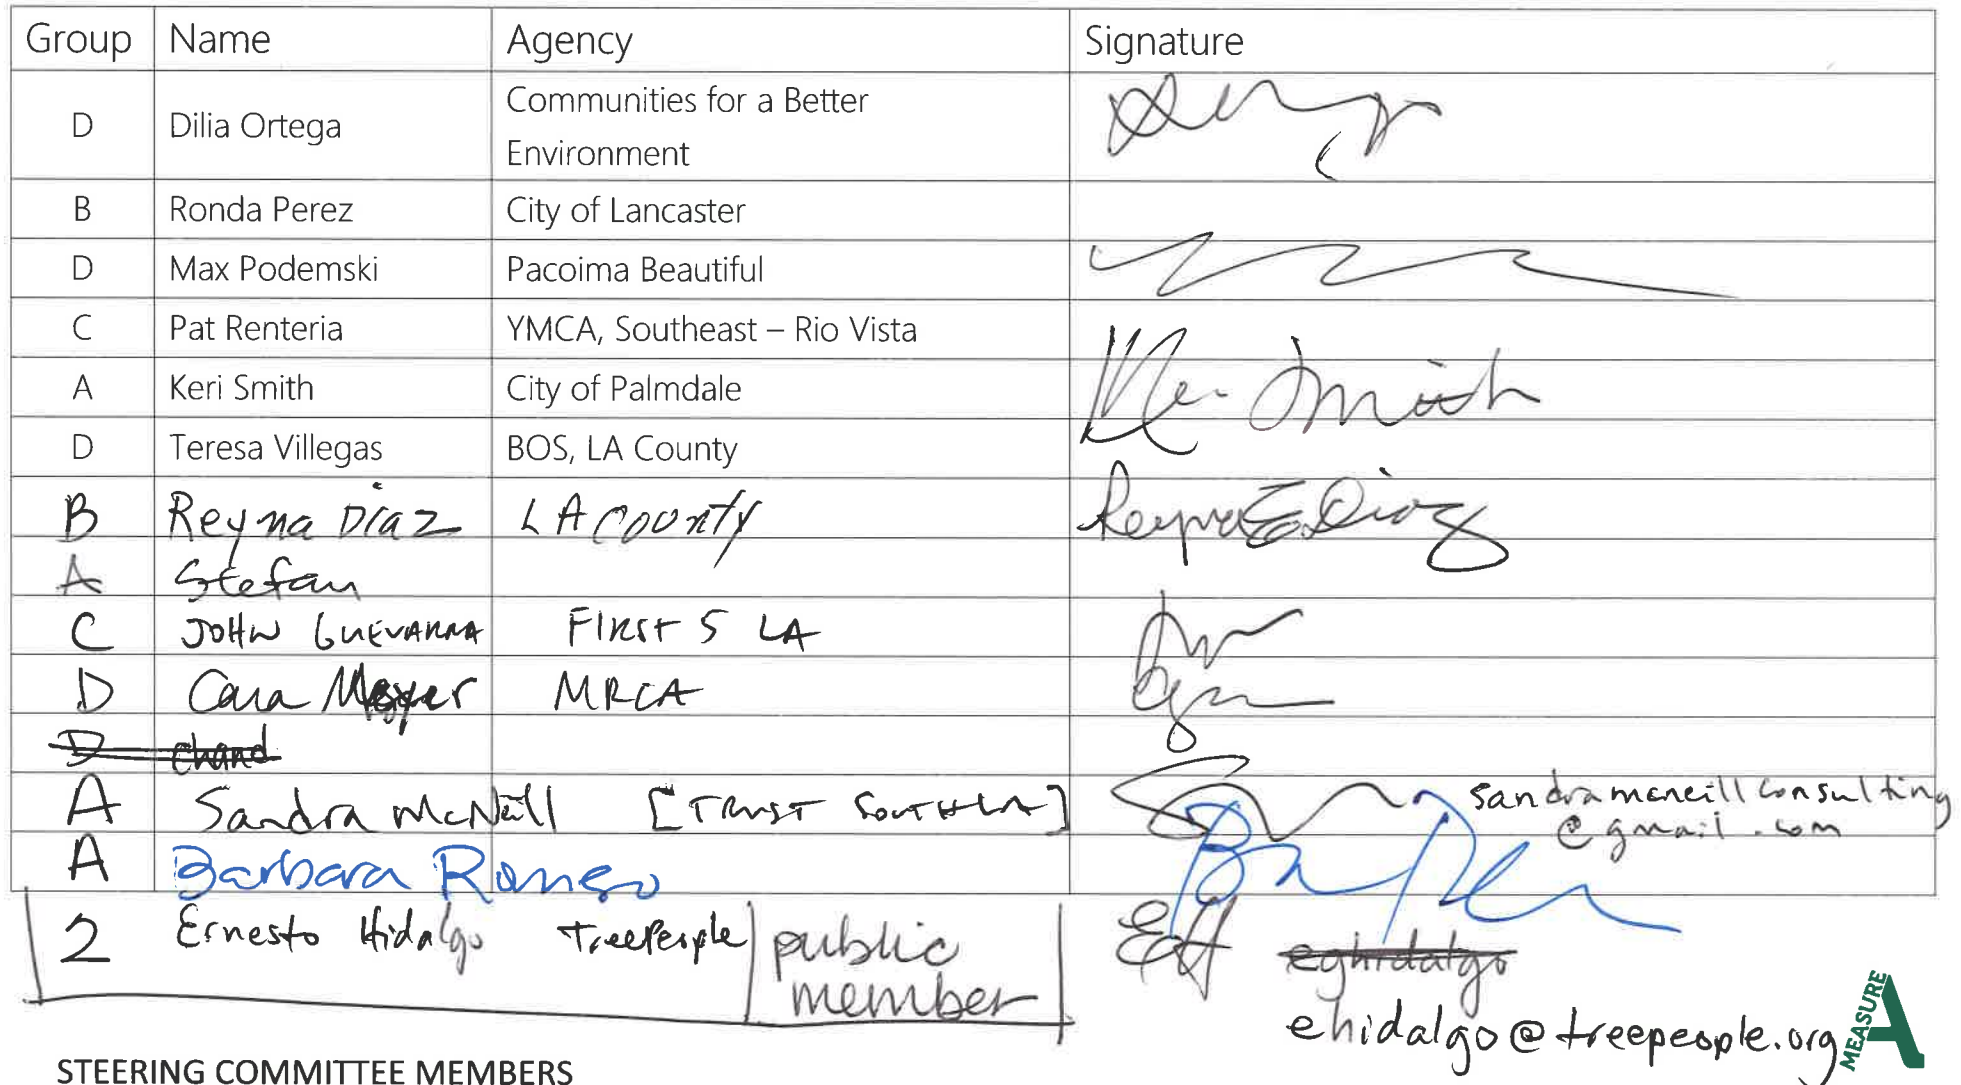 Group Name Agency Signature
D Dilia Ortega Communities for a Better
Environment
B Ronda Perez City of Lancaster
D Max Podemski Pacoima Beautiful
C Pat Renteria YMCA, Southeast – Rio Vista
A Keri Smith City of Palmdale Keri Smith
D Teresa Villegas BOS, LA County
B Reyna Diaz LA County Reyna E. Diaz
A Stefan
C JOHN GUEVARRA FIRST 5 LA
D Cara Meyer MRCA
D chand
A Sandra McNeill [TRUST SOUTH LA] sandramcneillconsulting
@gmail.com
A Barbara Romero
2 Ernesto Hidalgo TreePeople public EH eghidalgo
member
ehidalgo@treepeople.org
MEASURE A
STEERING COMMITTEE MEMBERS